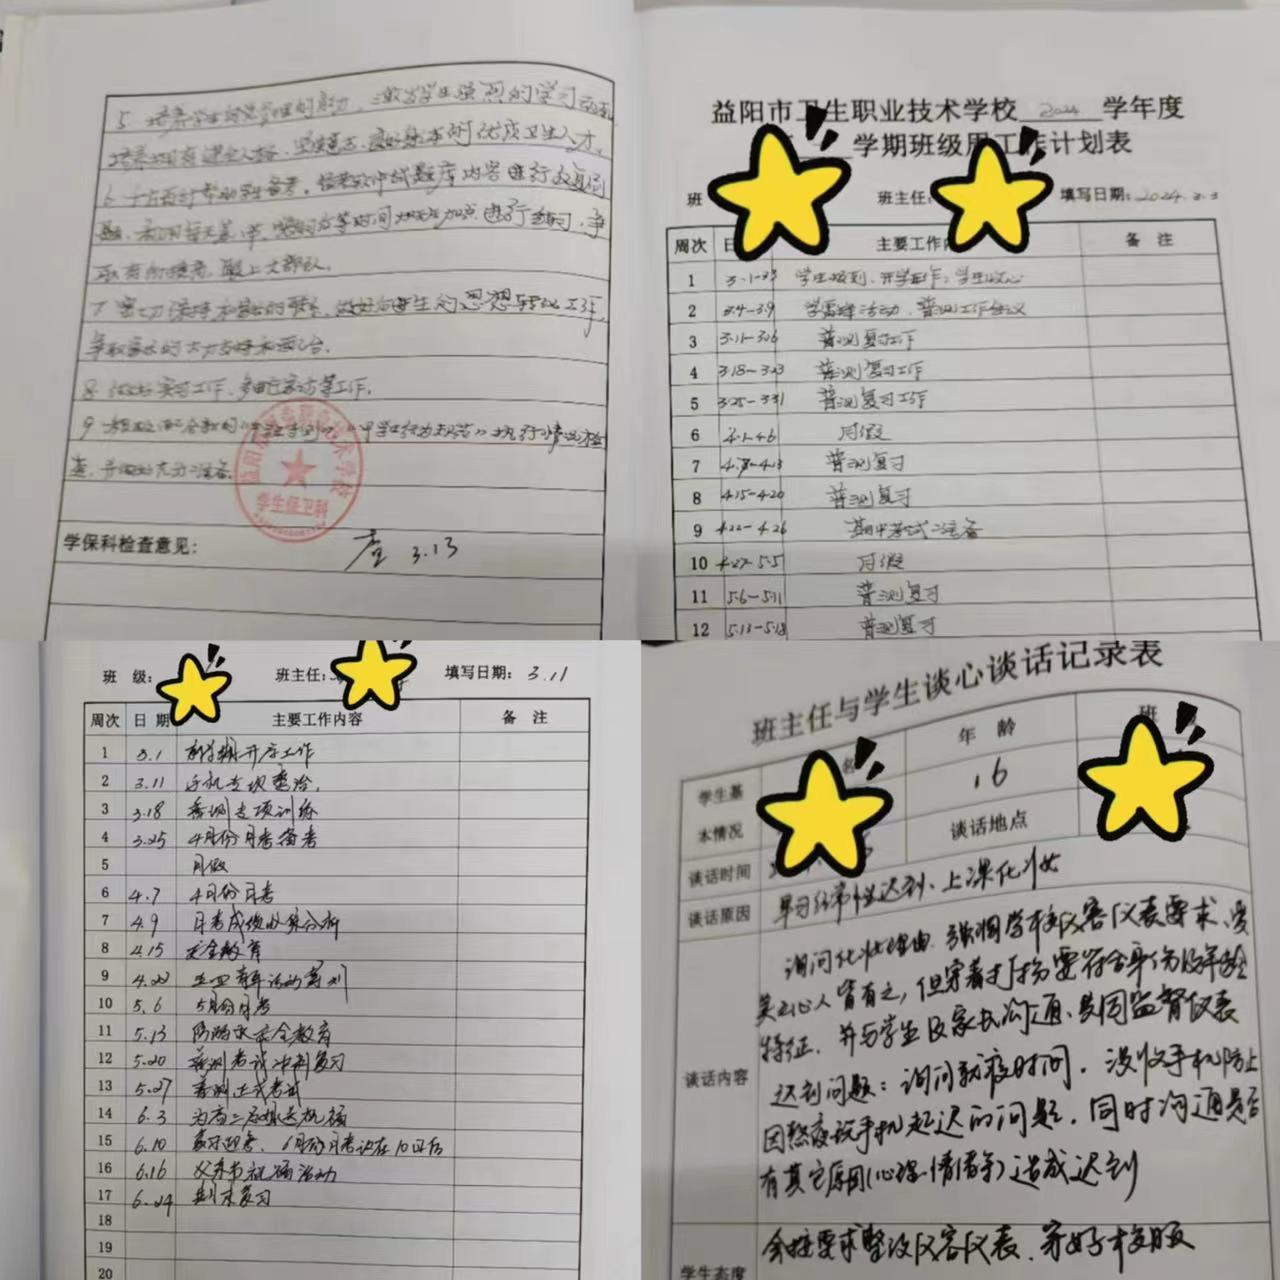 5. 培养学生自我管理的能力，激发学生强烈的学习动机
培养出有健全人格、坚强意志、良好基本的优质卫生人才。
取有所提高，跟上大部队。
争取家长的大力支持和配合。
8. 做好实习工作，多进行家访等工作。
益阳市卫生职业技术学校
学生保卫科
学保科检查意见：
查 3.13
益阳市卫生职业技术学校 2024 学年度
学期班级周工作计划表
班 班主任: 填写日期: 2024.3.3
周次 日 主要工作内 备 注
1 3.1-3.3 学生报到、开学工作、学生收心
2 3.4-3.9 学雷锋活动、普测工作会议
3 3.11-3.16 普测复习工作
4 3.18-3.23 普测复习工作
5 3.25-3.31 普测复习工作
6 4.1-4.6 月假
7 4.8-4.13 普测复习
8 4.15-4.20 普测复习
9 4.22-4.26 期中考试准备
10 4.27-5.5 月假
11 5.6-5.11 普测复习
12 5.13-5.18 普测复习
班 级: 班主任: 填写日期: 3.11
周次 日 期 主要工作内容 备 注
1 3.1 新学期开学工作
2 3.11 手机专项整治.
3 3.18 普测专项训练
4 3.25 4月份月考备考
5 月假
6 4.7 4月份月考
7 4.9 月考成绩收集分析
8 4.15 安全教育
9 4.22 五四青年活动筹划
10 5.6 5月份月考
11 5.13 防溺水安全教育
12 5.20 普测考试冲刺复习
13 5.27 普测正式考试
14 6.3 为高三届送祝福
15 6.10 6月份月考设在10日后
16 6.16 父亲节祝福活动
17 6.24 期末复习
18
19
20
班主任与学生谈心谈话记录表
学生基 名 年 龄 班
本情况 16 谈话地点
谈话时间
谈话原因 早习经常性迟到、上课化妆
谈话内容 询问化妆理由. 强调学校仪容仪表要求、爱
美之心人皆有之，但穿着打扮要符合身份及年龄
特征. 并与学生及家长沟通、共同监督仪表
迟到问题：询问就寝时间. 没收手机防止
因熬夜玩手机起迟的问题. 同时沟通是否
有其它原因(心理.情绪等)造成迟到
学生态度 会按要求整改仪容仪表、穿好校服